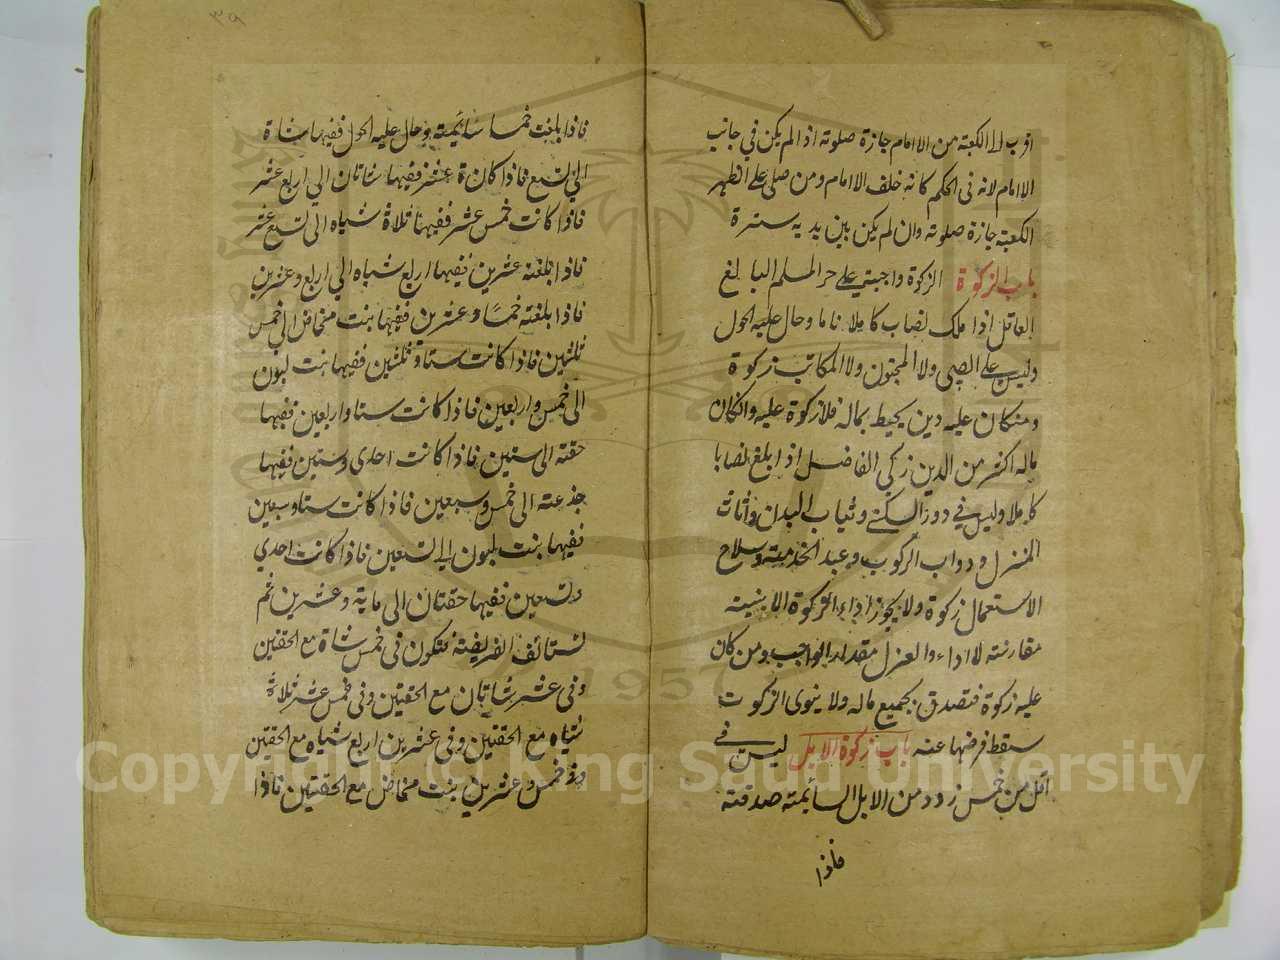 اقرب الى الكعبة من الامام جازة صلوته اذا لم يكن في جانب
الامام لانه في الحكم كانه خلف الامام ومن صلى على الظهر
الكعبة جازة صلوته وان لم يكن بين يديه سترة
باب الزكوة الزكوة واجبة على حر المسلم البالغ
العاقل اذا ملك نصاب كاملا ناما وحال عليه الحول
وليس على الصبى ولا المجنون ولا المكاتب زكوة
ومنكان عليه دين يحيط بماله فلا زكوة عليه وانكان
ماله اكثر من الدين زكى الفاضل اذا بلغ نصابا
كاملا وليس في دور السكنى وثياب البدن واثاث
المنزل ودواب الركوب وعبد الخدمته وسلاح
الاستعمال زكوة ولا يجوز اداء الزكوة الا بنيته
مقارنته لاداء والعزل مقدار الواجب ومن كان
عليه زكوة فتصدق بجميع ماله ولا ينوى الزكوت
سقط فرضها عنه باب زكوة الابل ليس في
اقل من خمس زود من الابل السائمته صدقته
فاذا
٣٩
فاذا بلغت خمسا سائمته وحال عليه الحول ففيها شاة
الى تسع فاذا كانة عشر ففيها شاتان الى اربع عشر
فاذا كانت خمس عشر ففيها ثلاة شياه الى تسع عشر
فاذا بلغته عشرين ففيها اربع شياه الى اربع وعشرين
فاذا بلغته خمسا وعشرين ففيها بنت مخاض الى خمس
ثلثين فاذا كانت ستا وثلثين ففيها بنت لبون
الى خمس واربعين فاذا كانت ستا واربعين ففيها
حقته الى ستين فاذا كانت احدى وستين ففيها
جذعته الى خمس وسبعين فاذا كانت ستا وسبعين
ففيها بنت لبون الى تسعين فاذا كانت احدى
وتسعين ففيها حقتان الى ماية وعشرين ثم
تستائف الفريضته فتكون فى خمس شاة مع الحقتين
وفى عشر شاتان مع الحقتين وفى خمس عشر ثلاثة
شياه مع الحقتين وفى عشرين اربع شياه مع الحقتين
وفى خمس وعشرين بنت مخاض مع الحقتين فاذا
Copyright © King Saud University
1957